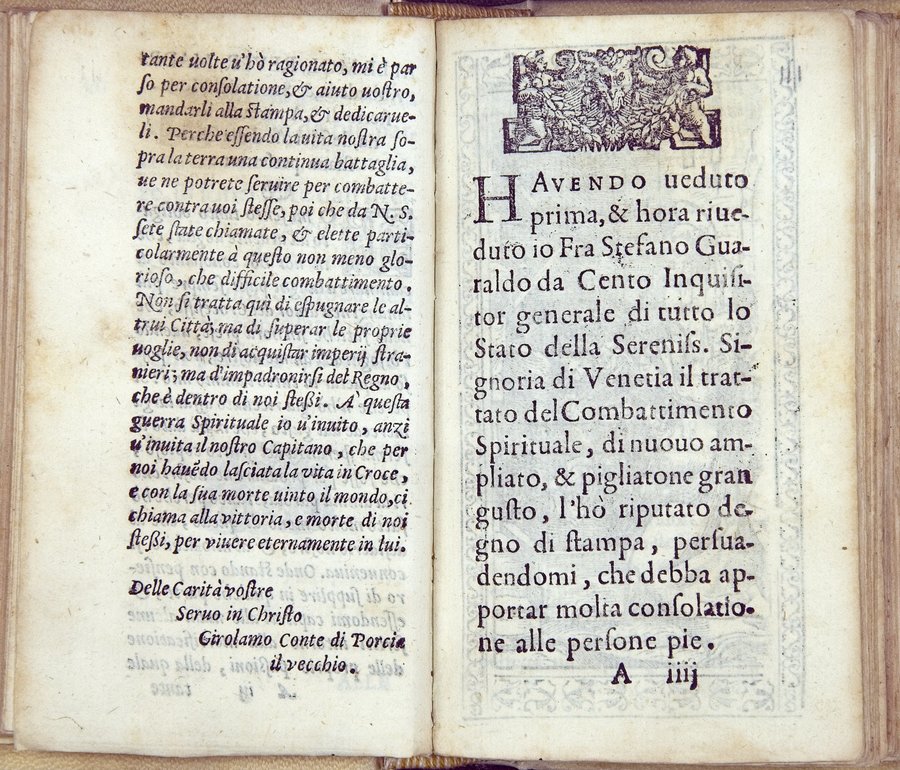 tante uolte u'hò ragionato, mi è par
ſo per conſolatione, & aiuto uoſtro,
mandarli alla ſtampa, & dedicarue-
li. Perche eſſendo la uita noſtra ſo-
pra la terra una continua battaglia,
ue ne potrete ſeruire per combatte-
re contra uoi ſteſſe, poi che da N. S.
ſete ſtate chiamate, & elette parti-
colarmente à queſto non meno glo-
rioſo, che difficile combattimento.
Non ſi tratta quì di eſpugnare le al-
trui Città; ma di ſuperar le proprie
uoglie, non di acquiſtar imperij ſtra-
nieri; ma d'impadronirſi del Regno,
che è dentro di noi ſteßi. A' queſta
guerra Spirituale io u'inuito, anzi
u'inuita il noſtro Capitano, che per
noi hauẽdo laſciata la vita in Croce,
e con la ſua morte uinto il mondo, ci
chiama alla vittoria, e morte di noi
ſteßi, per viuere eternamente in lui.
Delle Carità voſtre
Seruo in Chriſto
Girolamo Conte di Porcia
il vecchio.
HAVENDO ueduto
prima, & hora riue-
duto io Fra Stefano Gua-
raldo da Cento Inquiſi
tor generale di tutto lo
Stato della Sereniſs. Si-
gnoria di Venetia il trat-
tato del Combattimento
Spirituale, di nuouo am-
pliato, & pigliatone gran
guſto, l'hò riputato de-
gno di ſtampa, perſua-
dendomi, che debba ap-
portar molta conſolatio-
ne alle perſone pie.
A iiij